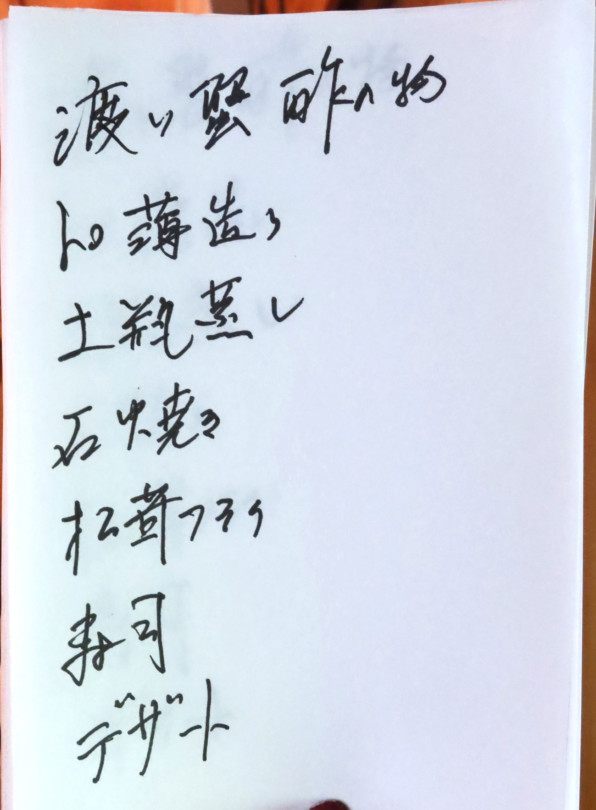 渡り蟹 酢の物
トロ薄造り
土瓶蒸し
石焼き
松茸フライ
寿司
デザート